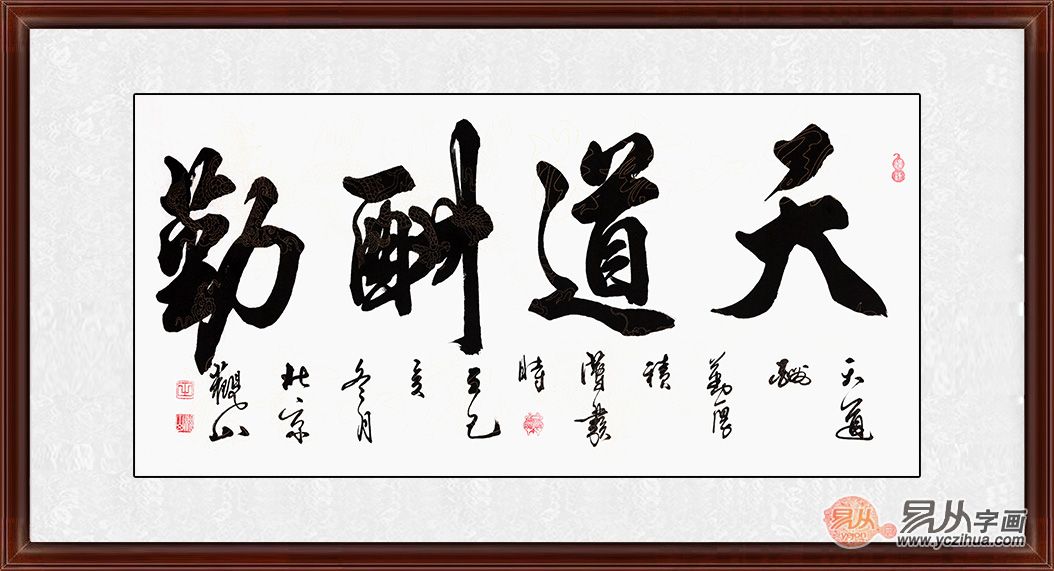 天道酬勤
天道
酬
勤厚
積
薄發
時
在己
亥
冬月
北京
觀山
易从
yejon
易从字画
www.yczihua.com